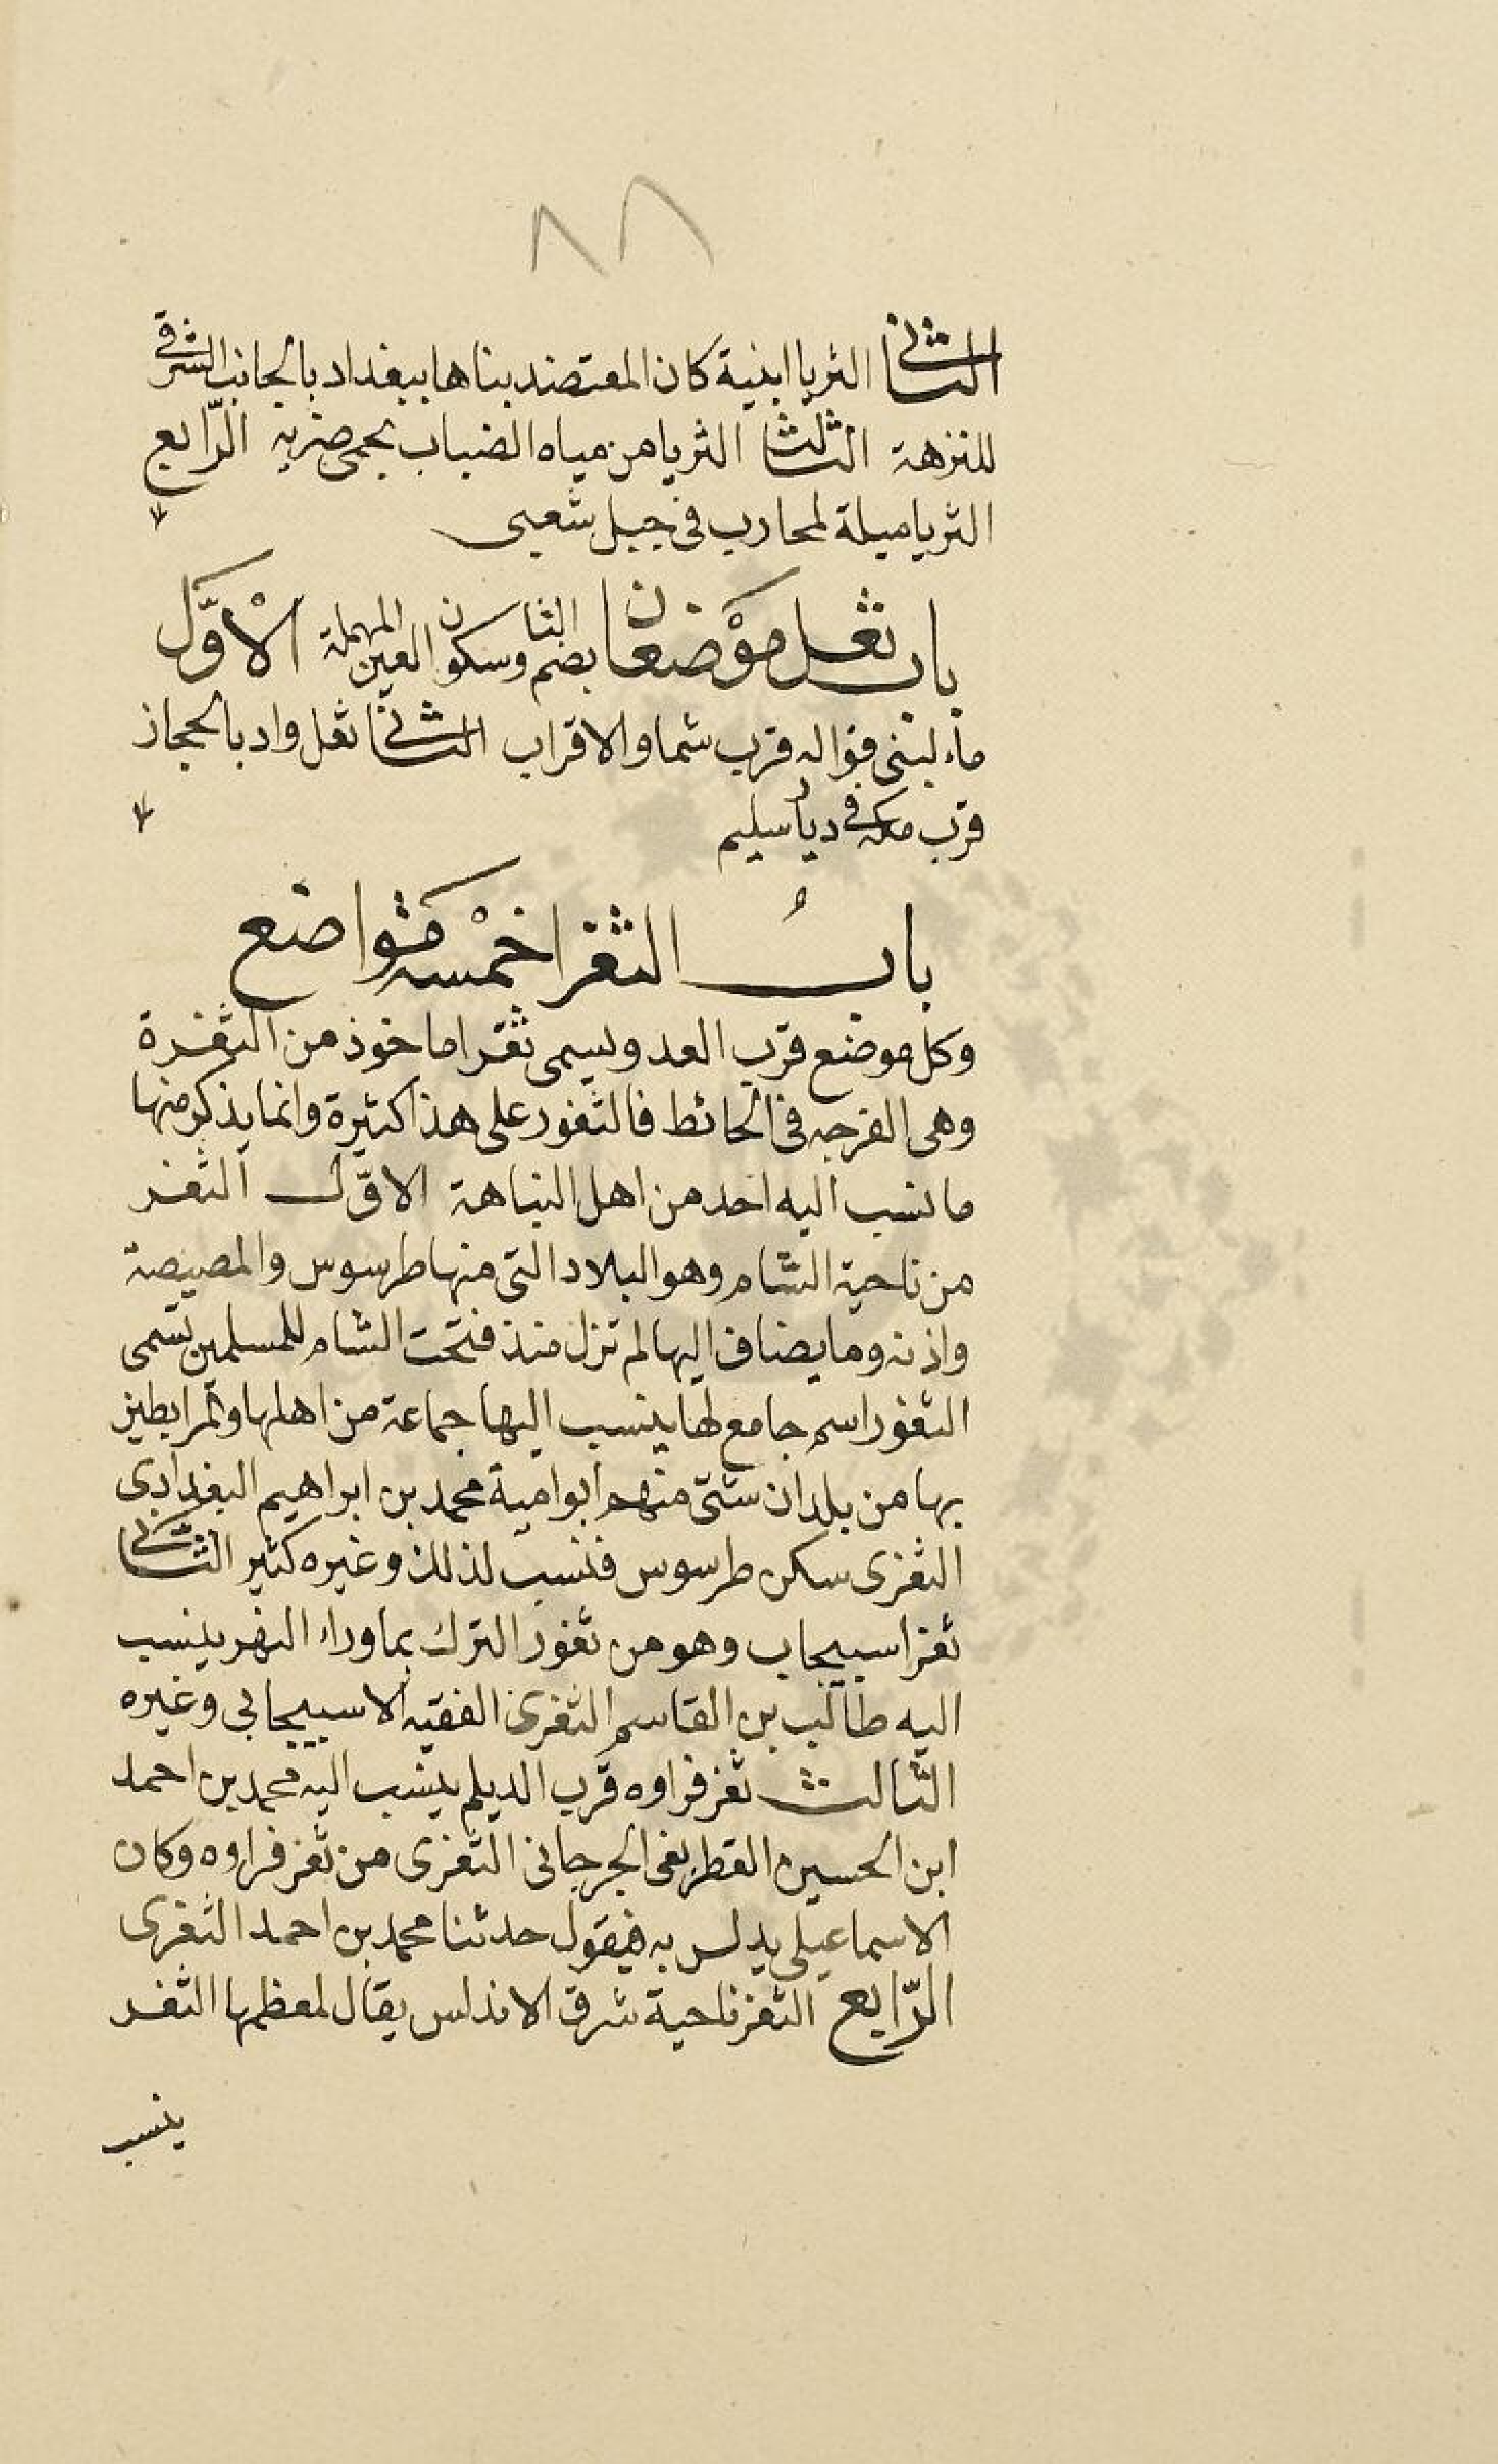 ٨٨
الثانى الثريا ابنية كان المعتضد بناها ببغداد بالجانب الشرقى
للنزهة الثالث الثريا من مياه الضباب بحمى ضريه الرّابع
الثريا ميلة لمحارب فى جبل شعبى
باب ثعل موْضعان بضم الثا وسكون العين المهملة الاْوَّل
ماء لبنى قواله قرب شما والاقراب الثانى ثعل واد بالحجاز
قرب مكه فى ديار سليم
بابُ الثغر اخمْسه مَواضع
وكل موضع قرب العدو يسمى ثغرا ماخوذ من الثغرة
وهى الفرجه فى الحائط فالثغور على هذا كثيرة وانما يذكر منها
ما نسب اليه احد من اهل النباهة الاوّل الثغر
من ناحية الشام وهو البلاد التى منها طرسوس والمصيصة
واذنه وما يضاف اليها لم تزل منذ فتحت الشام للمسلمين تسمى
الثغور اسم جامع لها ينسب اليها جماعة من اهلها والمرابطين
بها من بلدان شتى منهم ابو امية محمد بن ابراهيم البغدادى
الثغرى سكن طرسوس فنسب لذلك وغيره كثير الثانى
ثغر اسبيجاب وهو من ثغور الترك بما وراء النهر ينسب
اليه طالب بن القاسم الثغرى الفقيه الاسبيجابى وغيره
الثالث ثغر فراوه قرب الديلم ينسب اليه محمد بن احمد
ابن الحسين القطريفى الجرجانى الثغرى من ثغر فراوه وكان
الاسماعيلى يدلس به فيقول حدثنا محمد بن احمد الثغرى
الرّابع الثغر ناحية شرق الاندلس يقال لمعظمها الثغر
ينسب